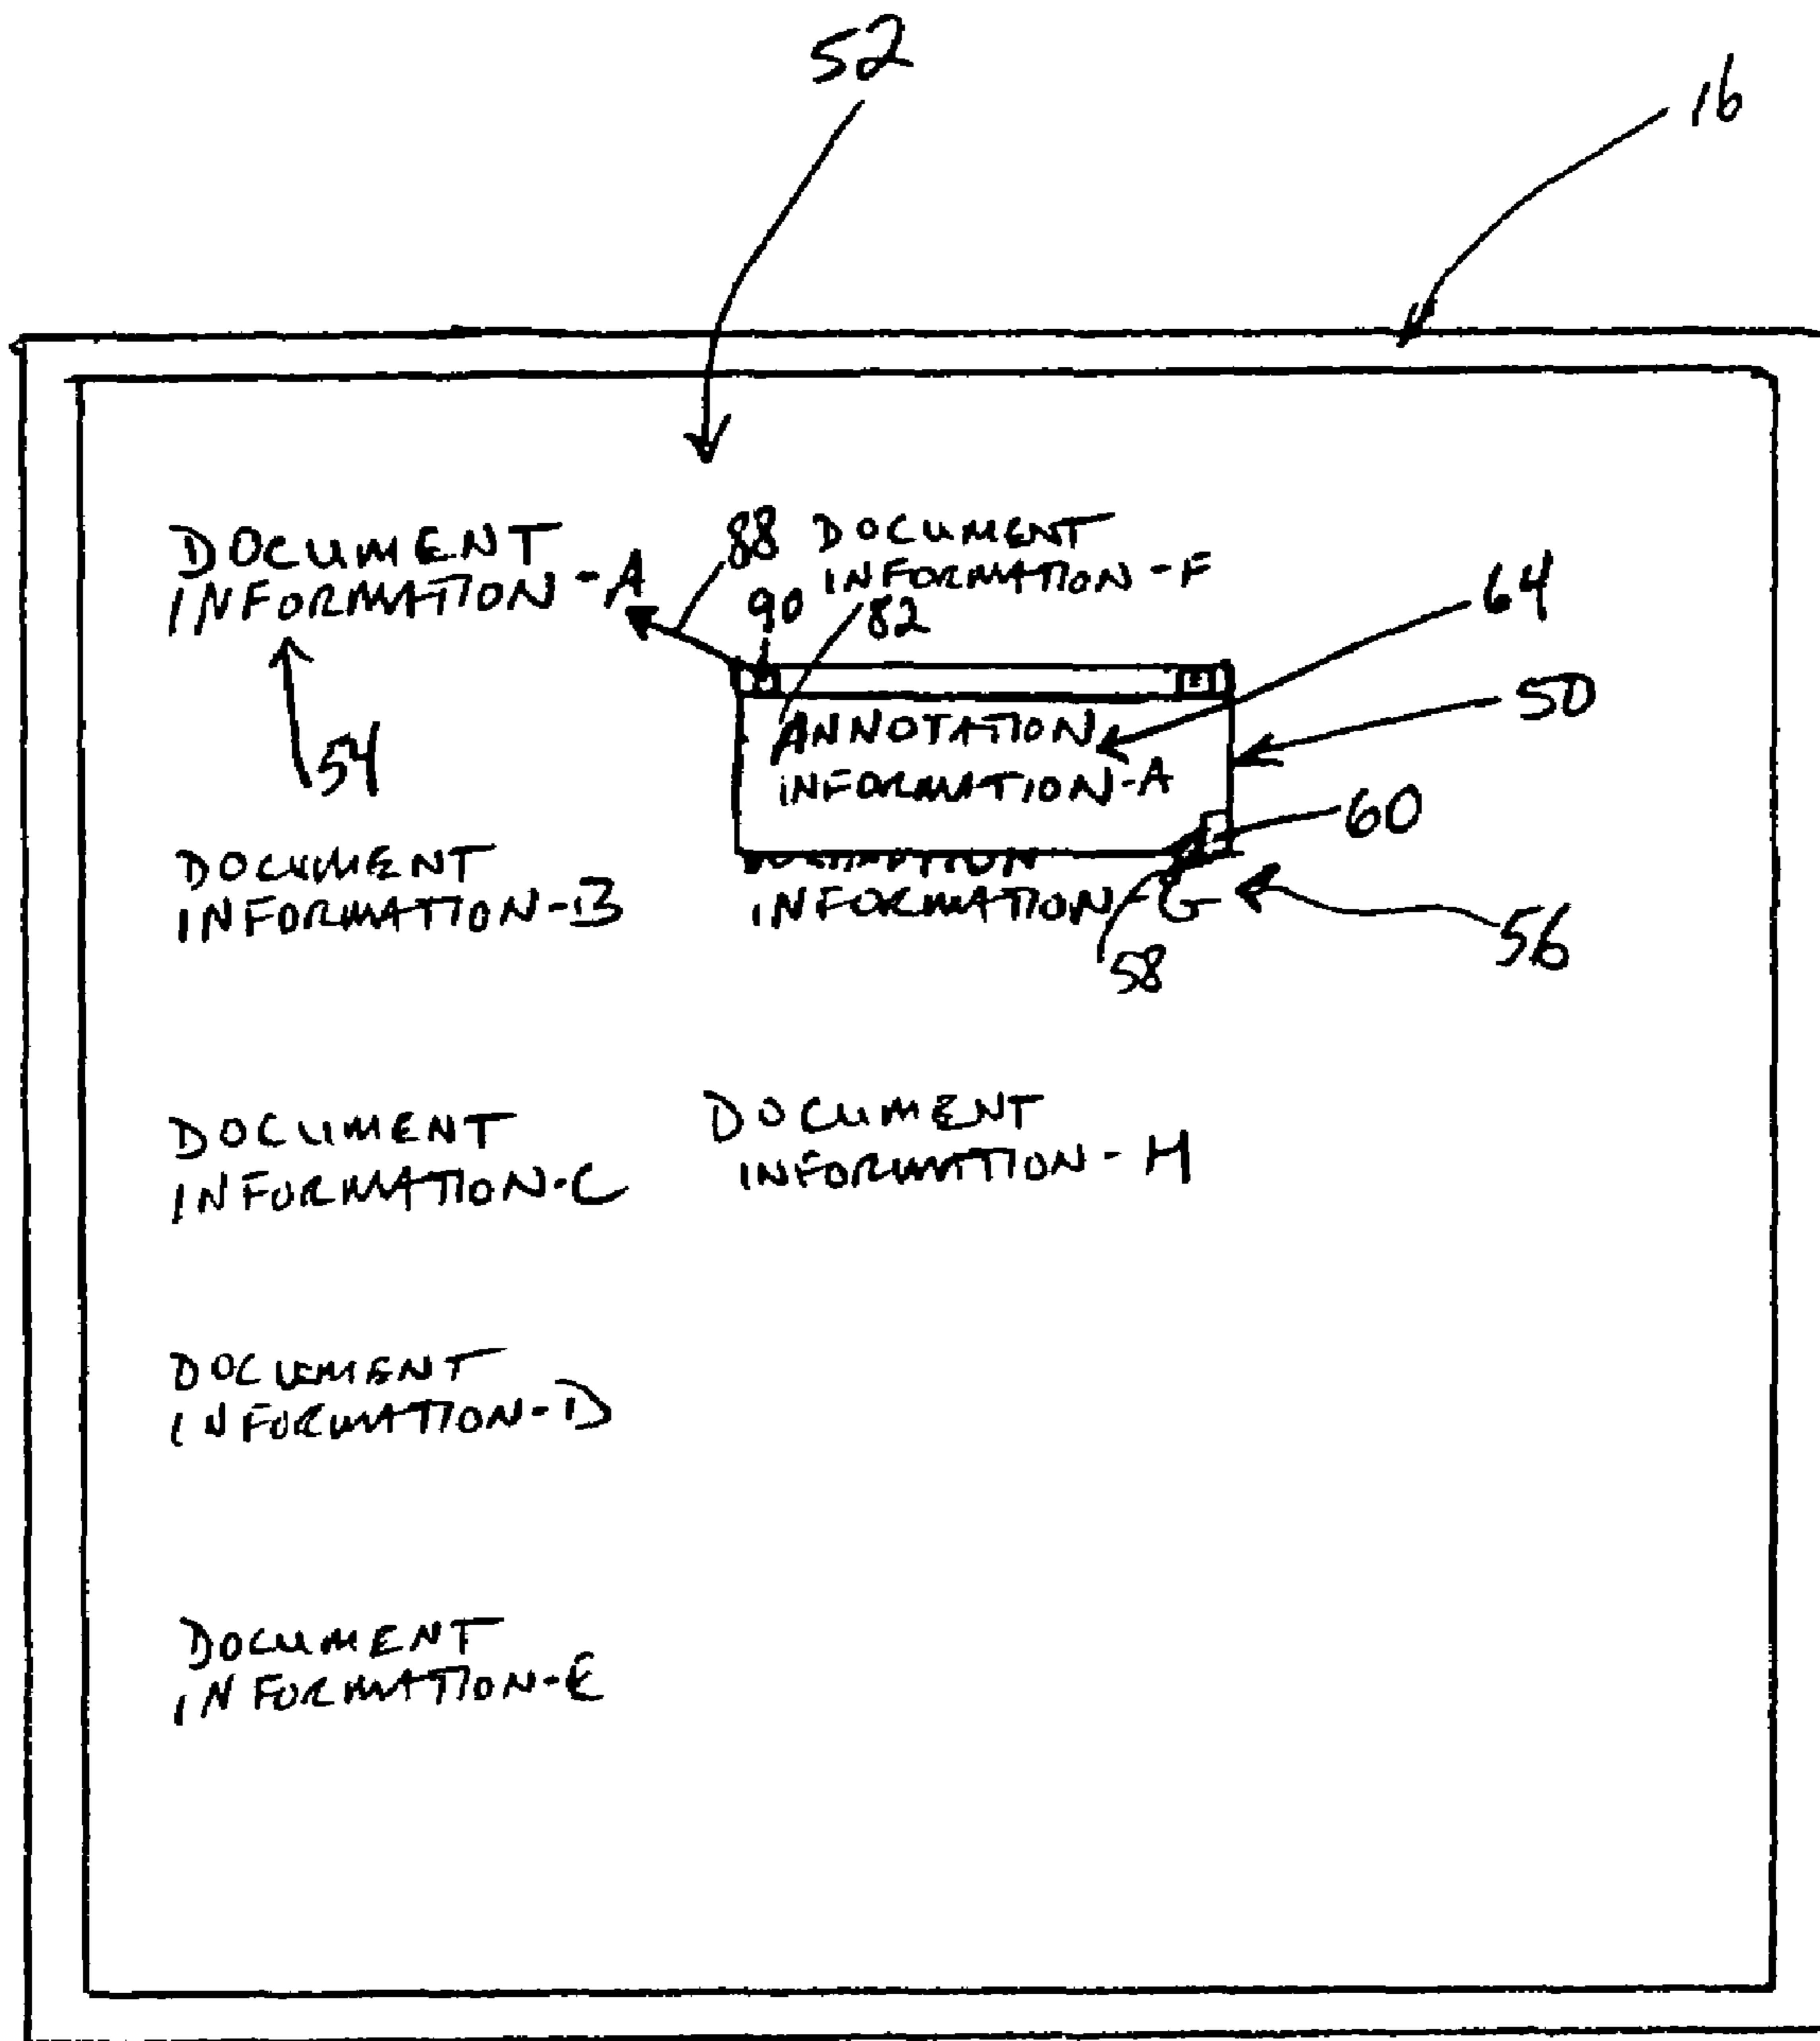 52
16
DOCUMENT
INFORMATION-A
88
DOCUMENT
INFORMATION-F
90
82
64
ANNOTATION
INFORMATION-A
50
54
60
DOCUMENT
INFORMATION-B
INFORMATION-G
58
56
DOCUMENT
INFORMATION-C
DOCUMENT
INFORMATION-H
DOCUMENT
INFORMATION-D
DOCUMENT
INFORMATION-E